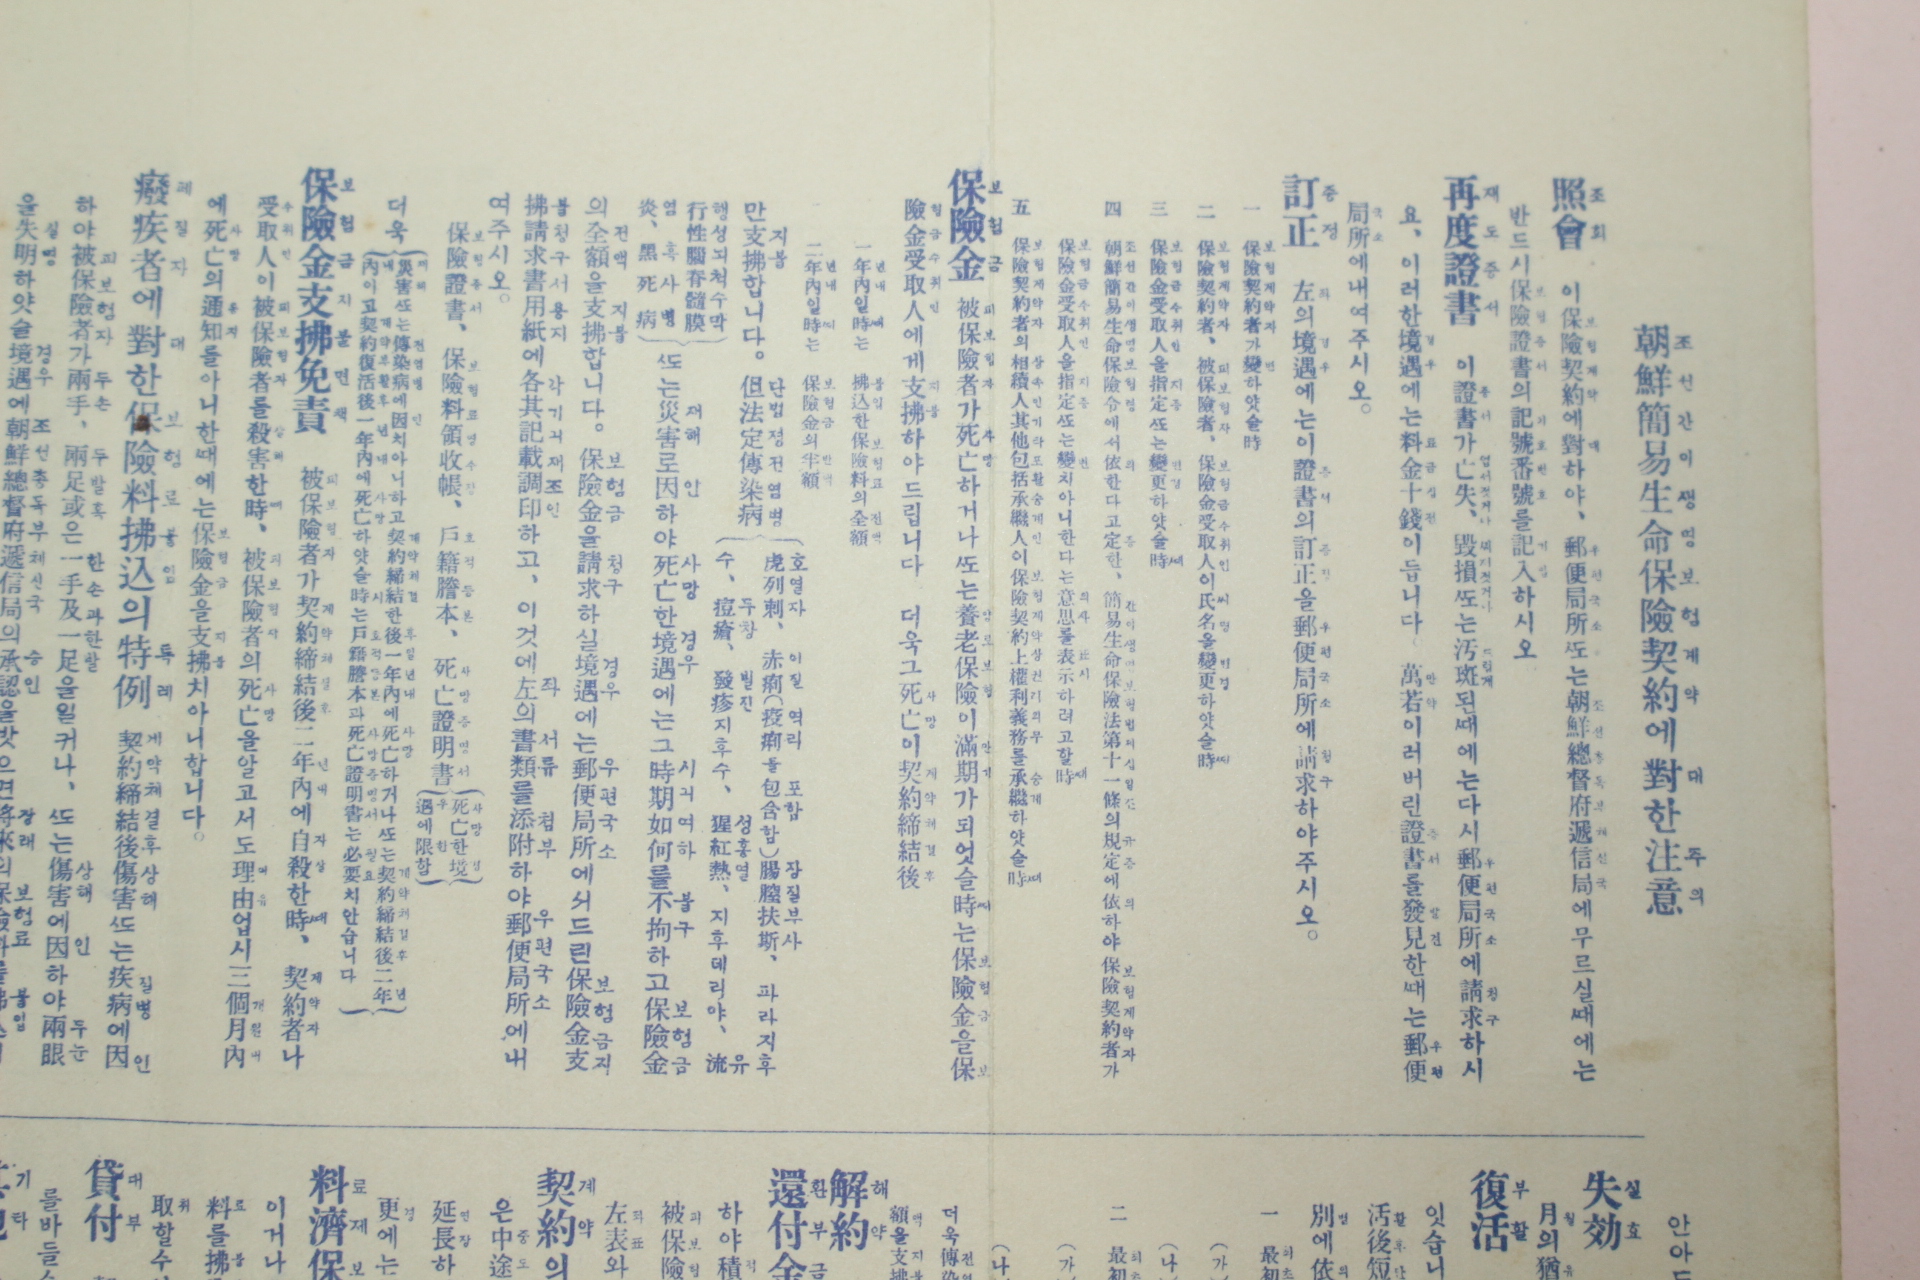 朝鮮簡易生命保險契約에對한注意
照會 이保險契約에對하야、郵便局所또는朝鮮總督府遞信局에무르실때에는
반드시保險證書의記號番號를記入하시오
再度證書 이證書가亡失、毀損또는汚斑된때에는다시郵便局所에請求하시
요、이러한境遇에는料金十錢이듭니다 萬若이러버린證書를發見한때는郵便
局所에내여주시오。
訂正 左의境遇에는이證書의訂正을郵便局所에請求하야주시오。
一 保險契約者가變하얏슬時
二 保險契約者、被保險者、保險金受取人이氏名을變更하얏슬時
三 保險金受取人을指定또는變更하얏슬時
四 朝鮮簡易生命保險令에서依한다고定한、簡易生命保險法第十一條의規定에依하야保險契約者가
保險金受取人을指定또는變치아니한다는意思를表示하려고할時
五 保險契約者의相續人其他包括承繼人이保險契約上權利義務를承繼하얏슬時
保險金 被保險者가死亡하거나또는養老保險이滿期가되엿슬時는保險金을保
險金受取人에게支拂하야드립니다 더욱그死亡이契約締結後
一年內일時는 拂込한保險料의全額
二年內일時는 保險金의半額
만支拂합니다。但法定傳染病(虎列刺、赤痢(疫痢를包含함)腸膣扶斯、파라지후
수、痘瘡、發疹지후수、猩紅熱、지후데리야、流
行性腦脊髓膜
炎、黑死病)또는災害로因하야死亡한境遇에는그時期如何를不拘하고保險金
의全額을支拂합니다。保險金을請求하실境遇에는郵便局所에서드린保險金支
拂請求書用紙에各其記載調印하고、이것에左의書類를添附하야郵便局所에내
여주시오。
保險證書、保險料領收帳、戶籍謄本、死亡證明書(死亡한境
遇에限함)
더욱(災害또는傳染病에因치아니하고契約締結한後一年內에死亡하거나또는契約締結後二年
內이고契約復活後一年內에死亡하얏슬時는戶籍謄本과死亡證明書는必要치안습니다)
保險金支拂免責 被保險者가契約締結後二年內에自殺한時、契約者나
受取人이被保險者를殺害한時、被保險者의死亡을알고서도理由업시三個月內
에死亡의通知를아니한때에는保險金을支拂치아니합니다。
癈疾者에對한保險料拂込의特例 契約締結後傷害또는疾病에因
하야被保險者가兩手、兩足或은一手及一足을일커나、또는傷害에因하야兩眼
을失明하얏슬境遇에朝鮮總督府遞信局의承認을밧으면將來의保險料를
안아
失効 月의猶
復活
잇습니
汚後短
別에依
一 最初
(가)
(나)
二 最初
(가)
(나)
더욱傳染
額을支拂
解約
還付金
하야積
被保險
左表와
契約의
은中途
延長하
更에는
料濟保
이거나
料를拂
取할수
貸付
를바들수